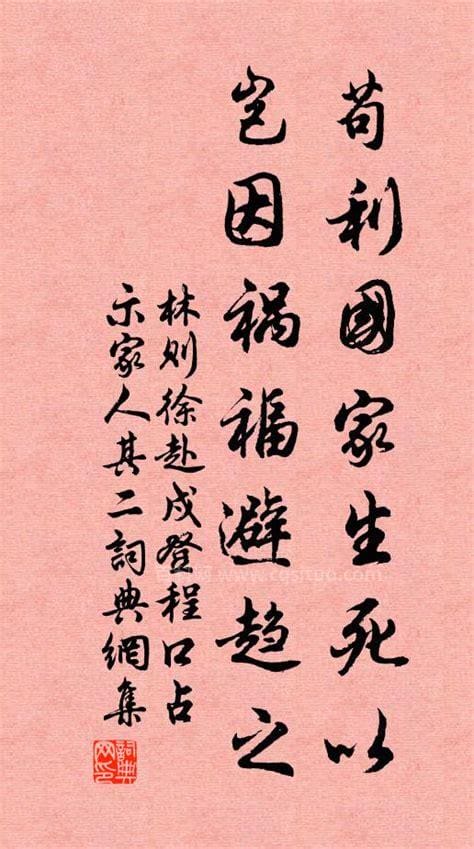 苟利國家生死以
豈因禍福避趨之
林则徐赴戍登程口占
示家人其二詞典網集
詞典网印
www.cqsjtpq.com